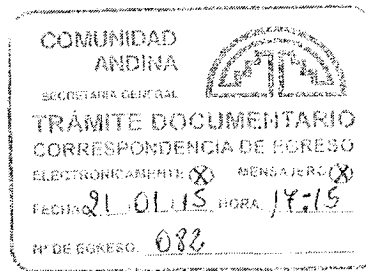 COMUNIDAD
ANDINA
SECRETARIA GENERAL
TRÁMITE DOCUMENTARIO
CORRESPONDENCIA DE EGRESO
ELECTRÓNICAMENTE (X) MENSAJERO (X)
FECHA 21.01.15 HORA 17:15
Nº DE EGRESO 082